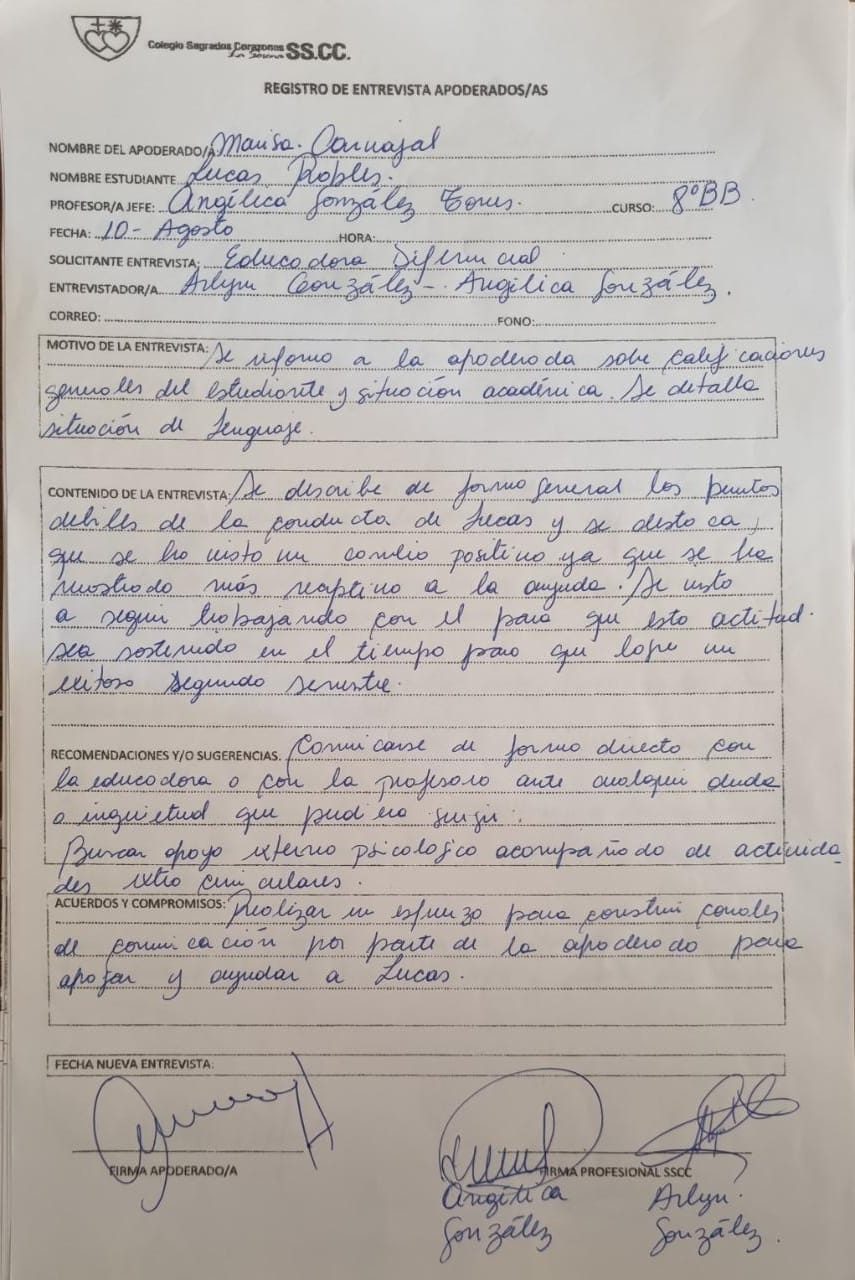 Colegio Sagrados Corazones SS.CC.
La Serena
REGISTRO DE ENTREVISTA APODERADOS/AS
NOMBRE DEL APODERADO/A Marisa Carvajal
NOMBRE ESTUDIANTE Lucas Robles.
PROFESOR/A JEFE: Angélica González Torres. CURSO: 8ºBB.
FECHA: 10- Agosto HORA:
SOLICITANTE ENTREVISTA: Educadora Diferencial
ENTREVISTADOR/A Arlyn González - Angélica González.
CORREO: FONO:
MOTIVO DE LA ENTREVISTA: Se informo a la apoderada sobe calificaciones
generales del estudiante y situación académica. Se detalla
situación de Lenguaje.
CONTENIDO DE LA ENTREVISTA: Se describe de forma general los puntos
debiles de la conducta de Lucas y se destaca,
que se ha visto un cambio positivo ya que se ha
mostrado más receptivo a la ayuda. Se insto
a seguir trabajando con el para que esta actitud.
sea sostenido en el tiempo para que logre un
exitoso segundo semestre.
RECOMENDACIONES Y/O SUGERENCIAS. Comunicarse de forma directo con
la educadora o con la profesora ante cualquier duda
o inquietud que pudiera surgir.
Buscar apoyo externo psicologico acompañado de activida
des extra curriculares.
ACUERDOS Y COMPROMISOS: Realizar un esfuerzo para construir canales
de comunicación por parte de la apoderado para
apoyar y ayudar a Lucas.
FECHA NUEVA ENTREVISTA:
FIRMA APODERADO/A FIRMA PROFESIONAL SSCC
Angélica Arlyn.
González González.